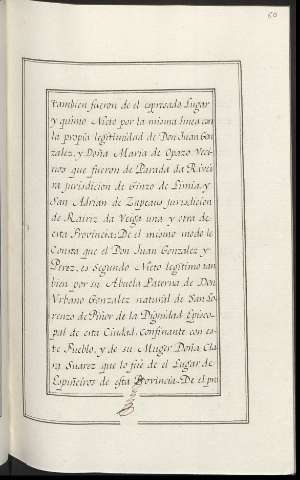 60
tambien fueron de el expresado Lugar
y quinto Nieto por la misma linea con
la propia legitimidad de Don Juan Gon
zalez, y Doña Maria de Opazo Veci
nos que fueron de Parada da Rivei
ra jurisdicion de Ginzo de Limia, y
San Adrian de Zapeaus jurisdicion
de Rairiz da Veiga una y otra de
esta Provincia: De el mismo modo le
Consta que el Don Juan Gonzalez y
Perez, es Segundo Nieto legitimo tam
bien por su Abuela Paterna de Don
Vrbano Gonzalez natural de San Lo
renzo de Piñor de la Dignidad Episco
pal de esta Ciudad, Confinante con es
te Pueblo, y de su Muger Doña Cla
ra Suarez que lo fué de el Lugar de
Espiñeiros de esta Provincia. De el pro